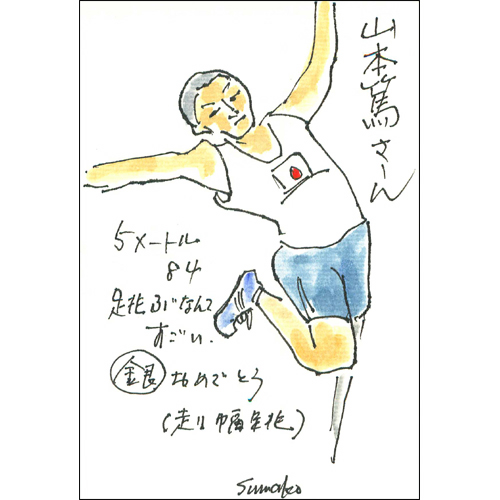 山本篤さーん
5メートル
84
足で飛ぶなんて
すごい.
銀 おめでとう
(走り幅跳)
Sumako